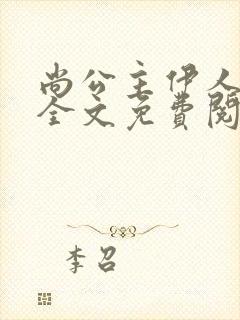 尚公主伊人
全文免费阅
李召